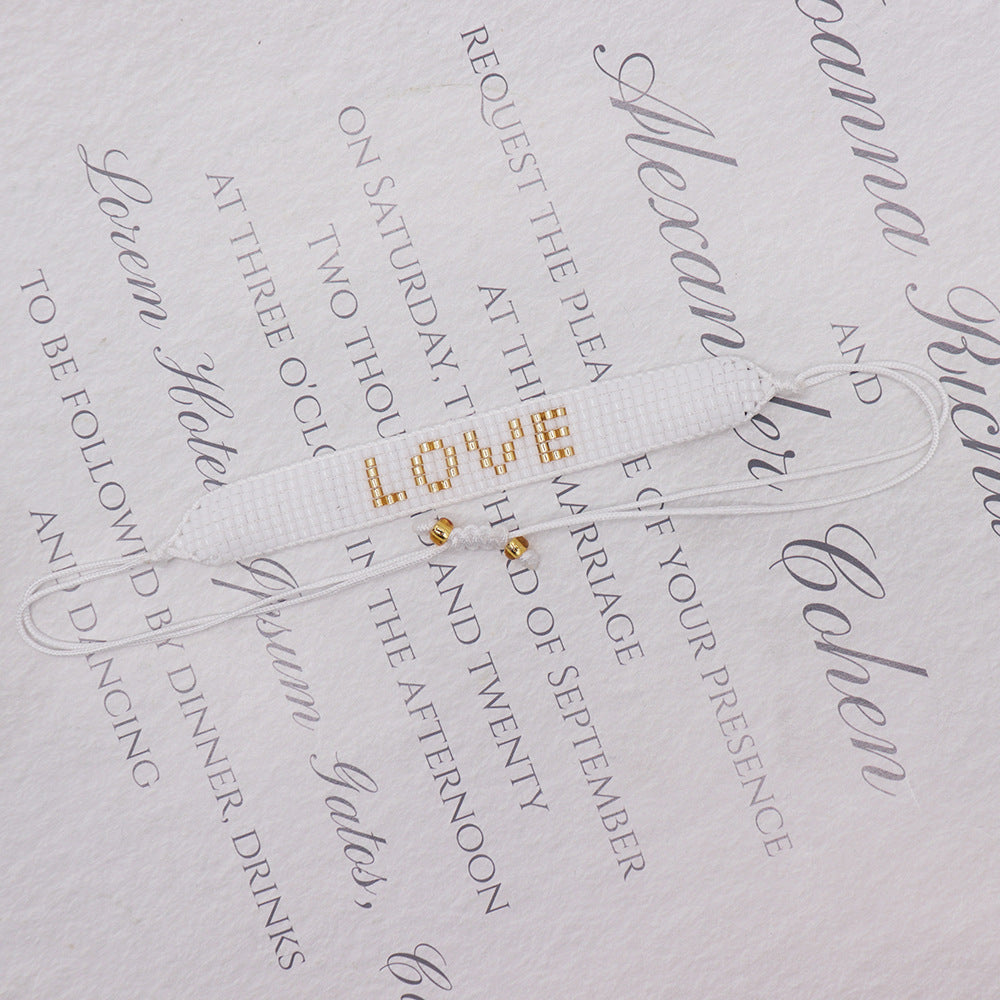 LOVE
AND
Alexander Cohen
REQUEST THE OF YOUR PRESENCE
AT MARRIAGE
ON SATURDAY, OF SEPTEMBER
TWO AND TWENTY
AT THREE IN THE AFTERNOON
Lorem Hotel Ipsum Gatos,
TO BE FOLLOWED BY DINNER, DRINKS
AND DANCING